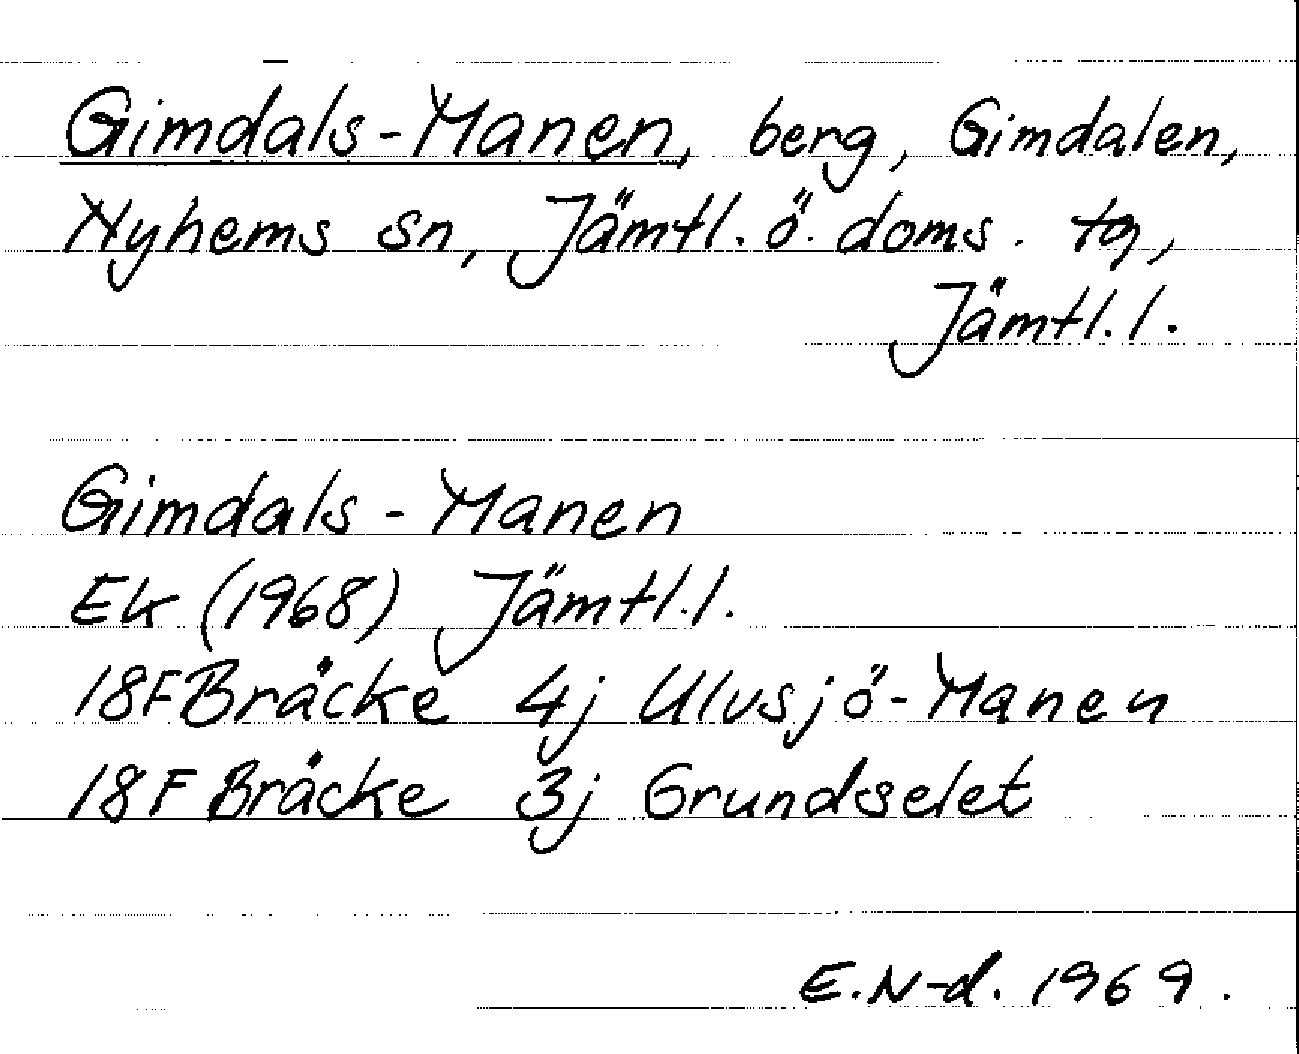 Gimdals-Manen, berg, Gimdalen,
Nyhems sn, Jämtl. ö. doms. tg,
Jämtl. l.
Gimdals-Manen
Ek (1968) Jämtl. l.
18F Bräcke 4j Ulvsjö-Manen
18F Bräcke 3j Grundselet
E.N-d. 1969.